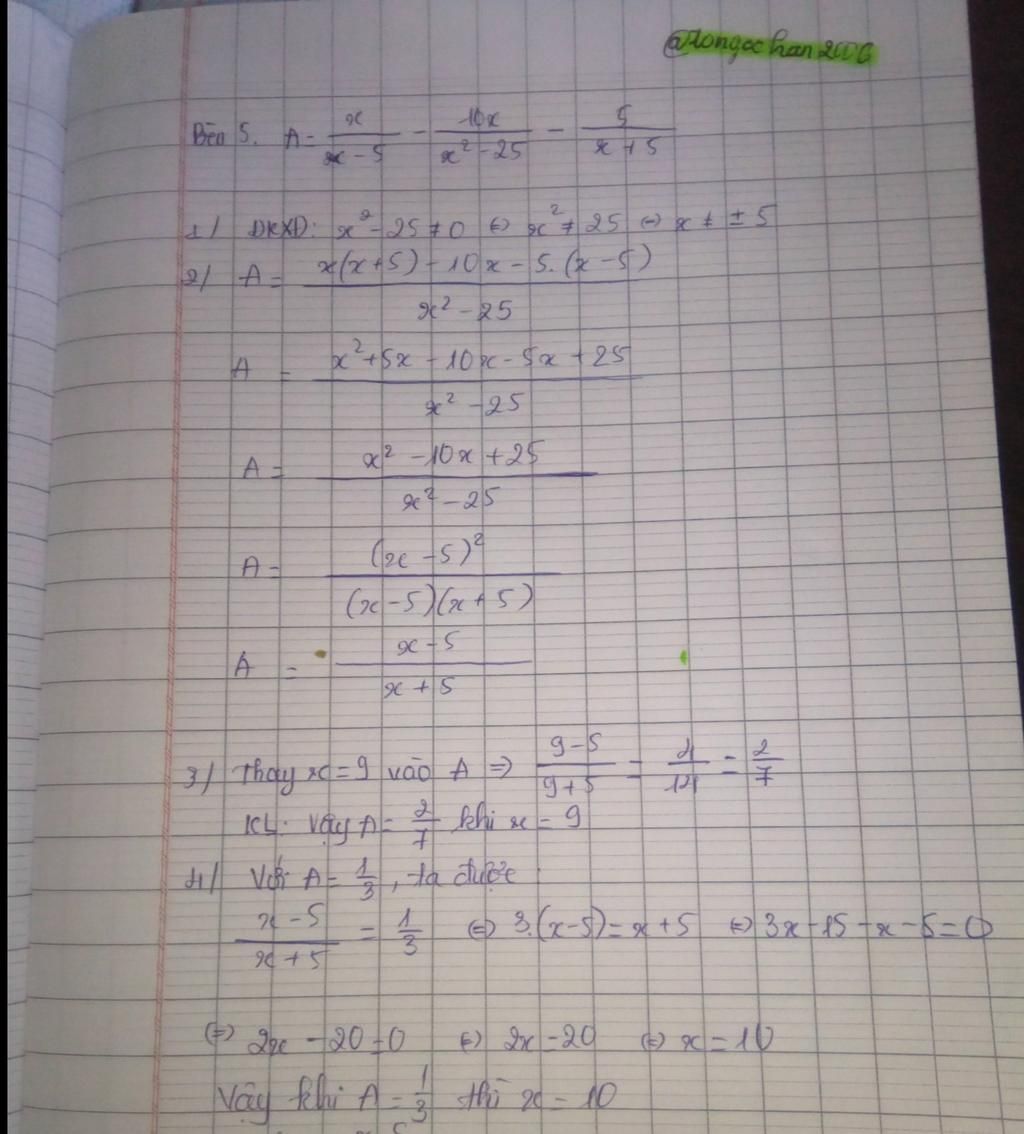 @Hongochan2006
Bài 5. A = x/(x - 5) - 10x/(x² - 25) - 5/(x + 5)
1/ ĐKXĐ: x² - 25 ≠ 0 ⇔ x² ≠ 25 ⇔ x ≠ ± 5
2/ A = (x(x + 5) - 10x - 5.(x - 5))/(x² - 25)
A = (x² + 5x - 10x - 5x + 25)/(x² - 25)
A = (x² - 10x + 25)/(x² - 25)
A = (x - 5)²/((x - 5)(x + 5))
A = (x - 5)/(x + 5)
3/ Thay x = 9 vào A ⇒ (9 - 5)/(9 + 5) = 4/14 = 2/7
KL: Vậy A = 2/7 khi x = 9
4/ Với A = 1/3, ta được
(x - 5)/(x + 5) = 1/3 ⇔ 3.(x - 5) = x + 5 ⇔ 3x - 15 - x - 5 = 0
⇔ 2x - 20 = 0 ⇔ 2x = 20 ⇔ x = 10
Vậy khi A = 1/3 thì x = 10